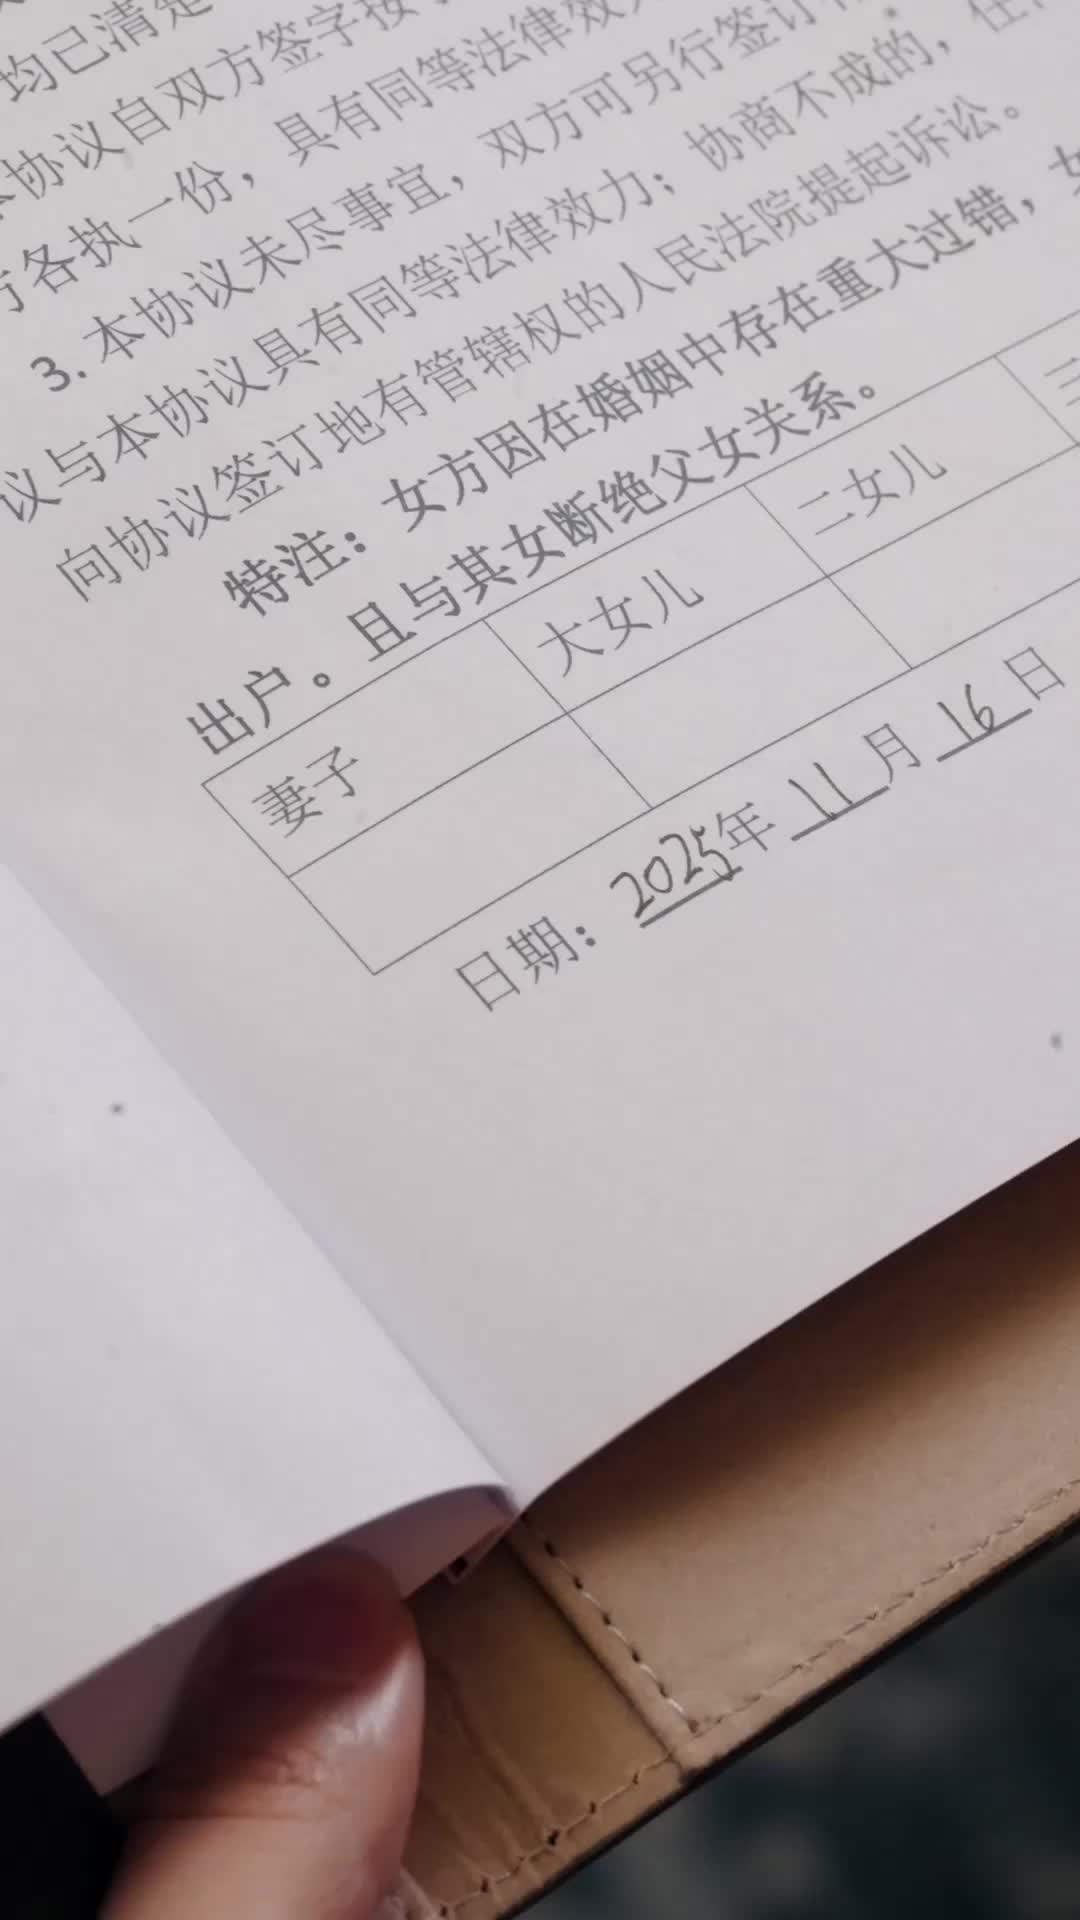 均已清楚
本协议自双方签字按
方各执一份，具有同等法律效
3. 本协议未尽事宜，双方可另行签订
议与本协议具有同等法律效力；协商不成的，任
向协议签订地有管辖权的人民法院提起诉讼。
特注：女方因在婚姻中存在重大过错，女
出户。且与其女断绝父女关系。
妻子 大女儿 二女儿 三
日期：2025年 11 月 16 日